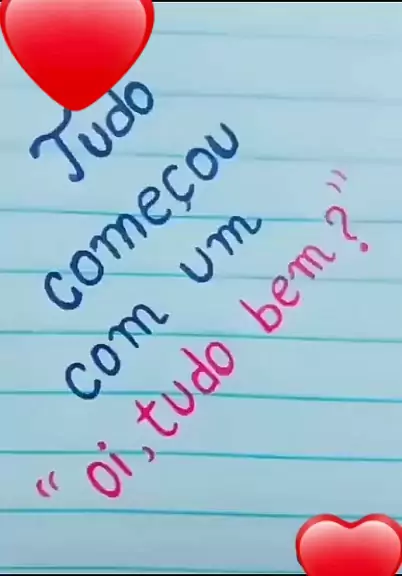 Tudo
começou
com um
“oi, tudo bem?”